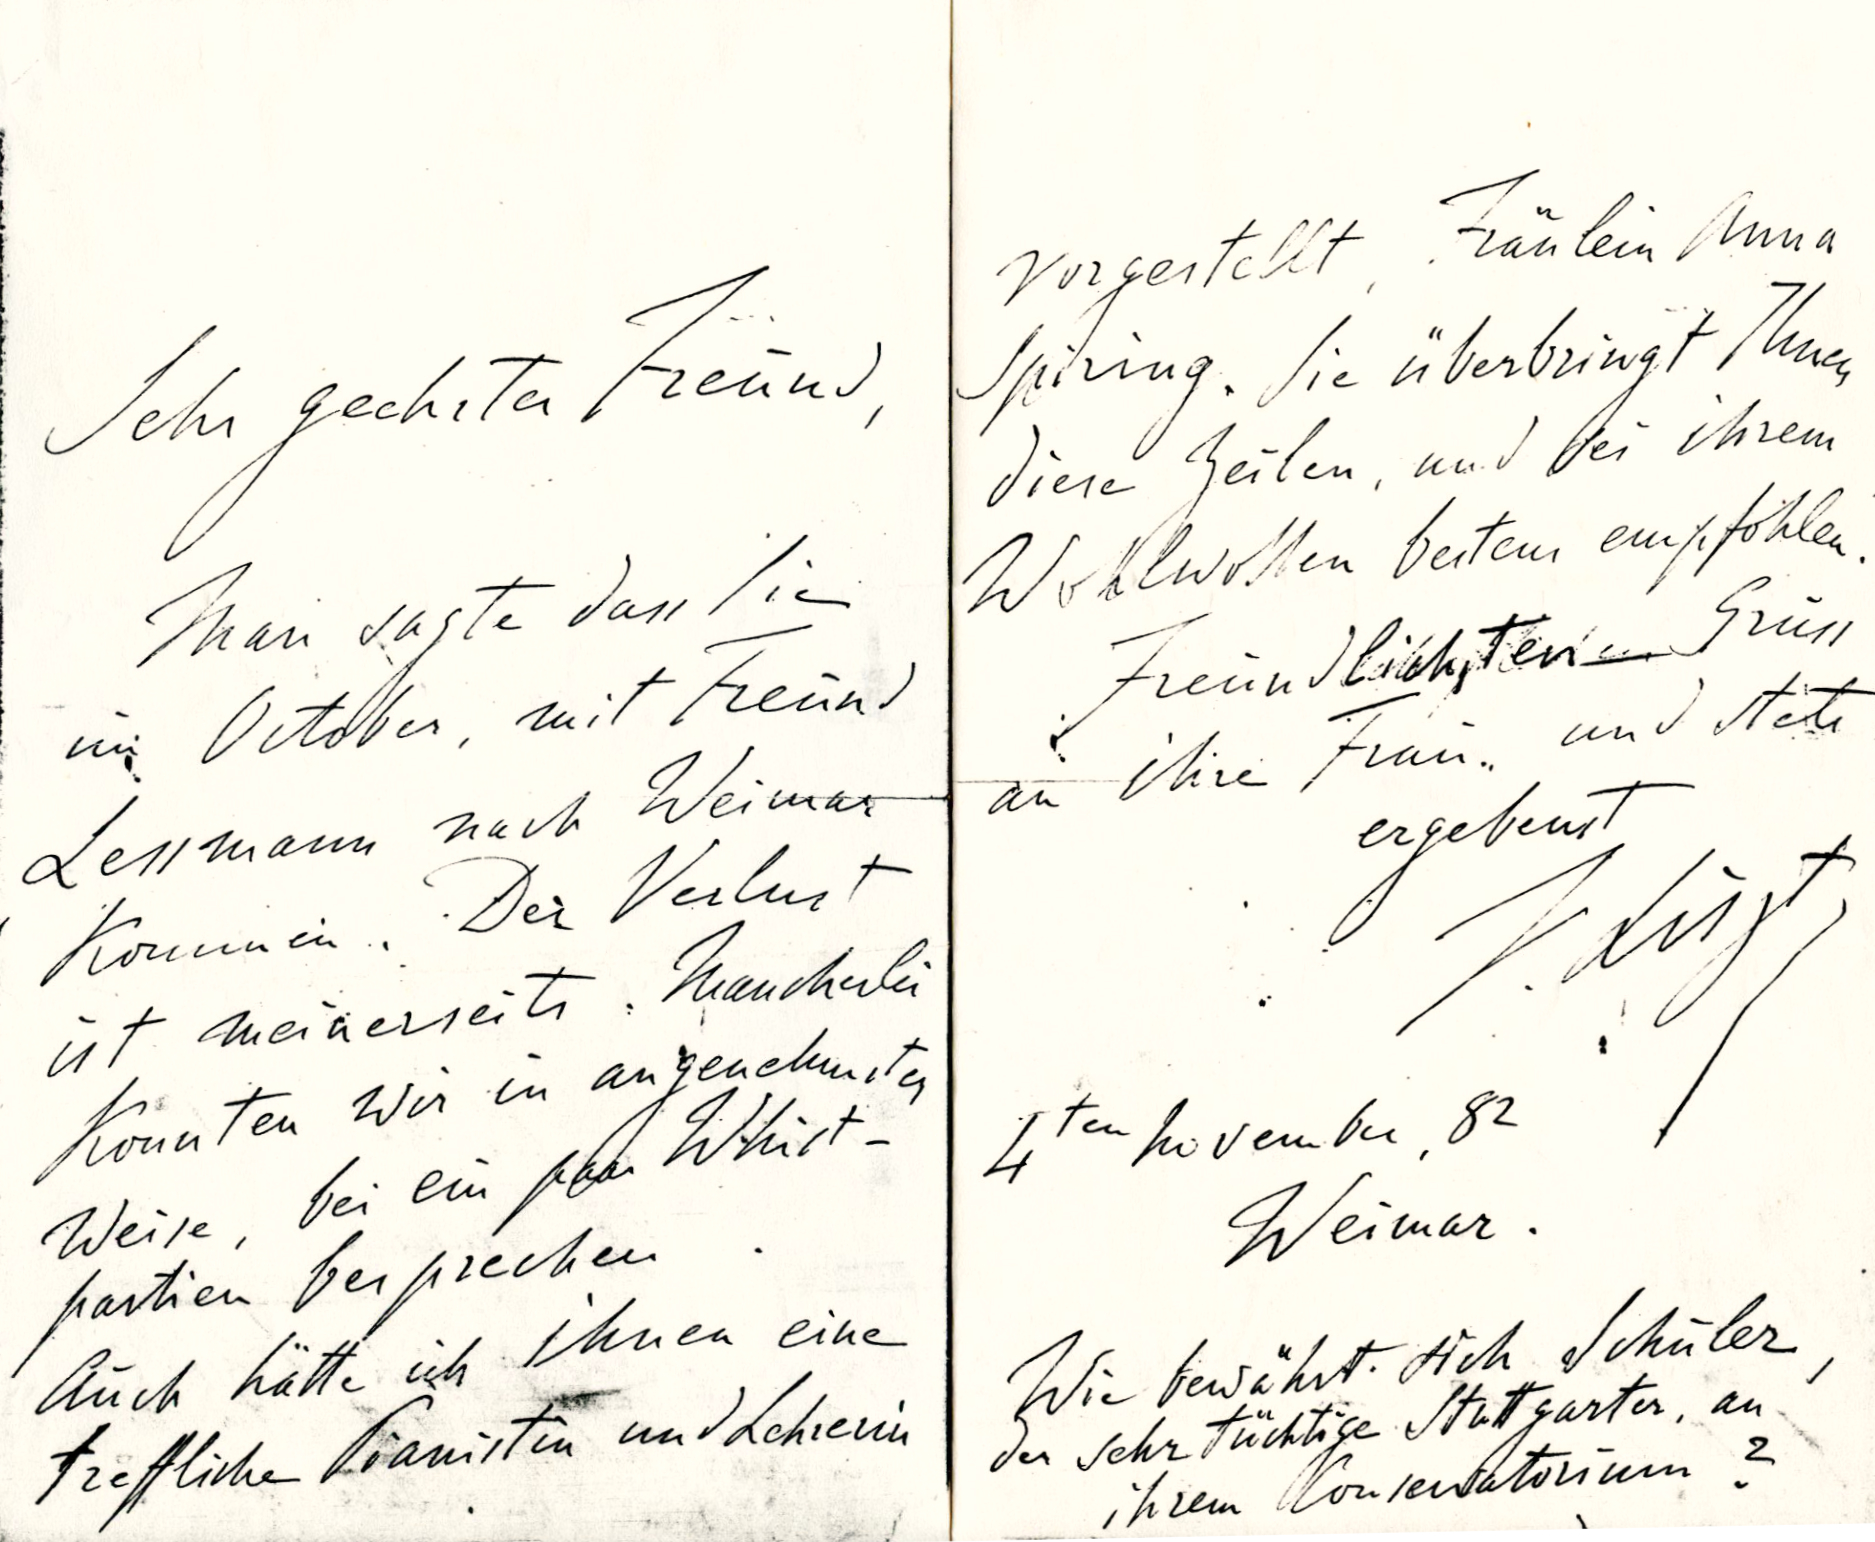 Sehr geehrter Freund,
Man sagte dass Sie
im October, mit Freund
Lessmann nach Weimar
kommen. Der Verlust
ist meinerseits. Mancherlei
konnten wir in angenehmster
Weise, bei ein paar Whist-
partien besprechen.
Auch hätte ich ihnen eine
treffliche Pianistin und Lehrerin
vorgestellt, Fräulein Anna
Spiring. Sie überbringt Ihnen
diese Zeilen, und sei ihrem
Wohlwollen bestens empfohlen.
Freundlichsten Gruss
an ihre Frau, und stets
ergebenst
F. Liszt
4ten November, 82
Weimar.
Wie bewährt sich Schuler,
der sehr tüchtige Stuttgarter, an
ihrem Conservatorium?